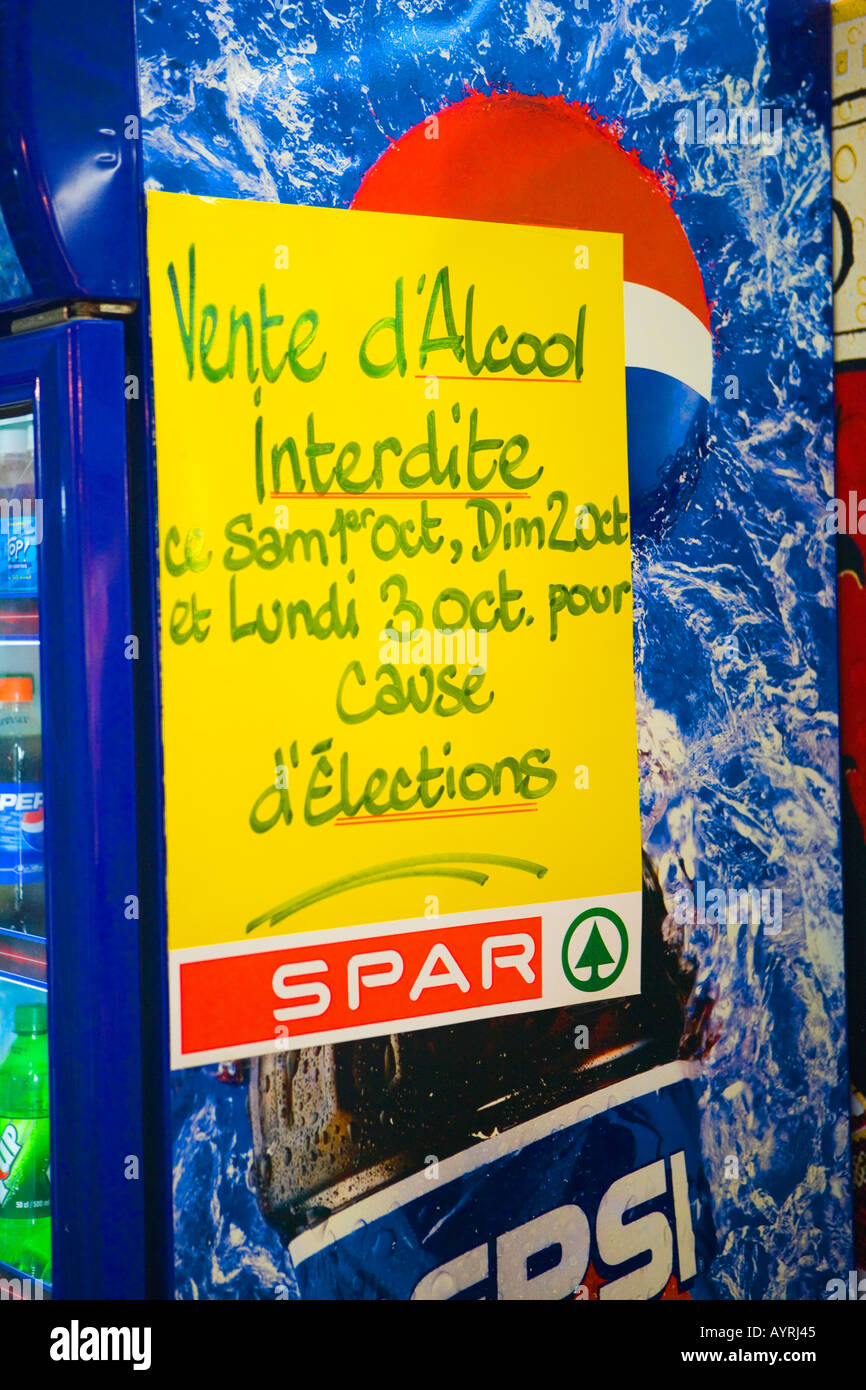 Vente d'Alcool
Interdite
ce Sam 1er Oct, Dim 2 Oct
et Lundi 3 oct. pour
Cause
d'Élections
SPAR
PEPSI
PEP
UP
50 cl / 500
alamy
Image ID: AYRJ45
www.alamy.com